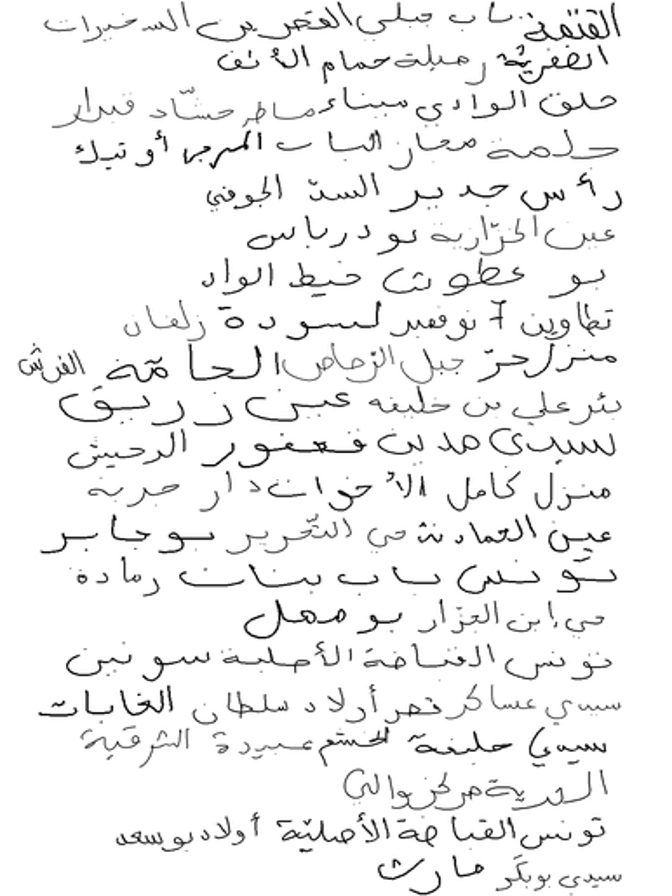 القنقفة باب جبلي القصرين السخيرات
الظفرية رميلة حمام الأنف
حلق الوادي ميناء ماطر حشّاد قبرار
حلمة مغاز الباب المرمر أوتيك
رأس جدير السدّ الجوفي
عين الخزازية بودرياس
بو عطوش خيط الواد
تطاوين 7 نوفمبر لسودة زلفان
منزل حرّ جبل الرّصاص الحامّة الفرش
بئر علي بن خليفة عين زريق
سيدي مدين فعفور الدخيش
منزل كامل الأخوات دار جربة
عين الحمادنة حي التّحرير بوجابر
تونس باب بنات رمادة
حي إبن الجزار بو مهل
تونس القباضة الأصلية سونين
سيدي عساكر قصر أولاد سلطان الغابات
سيدي خليفة لخشم عبيدة الشرقية
مركز والي
تونس القباضة الأصليّة أولاد بوسعد
سيدي بوبكر مارث